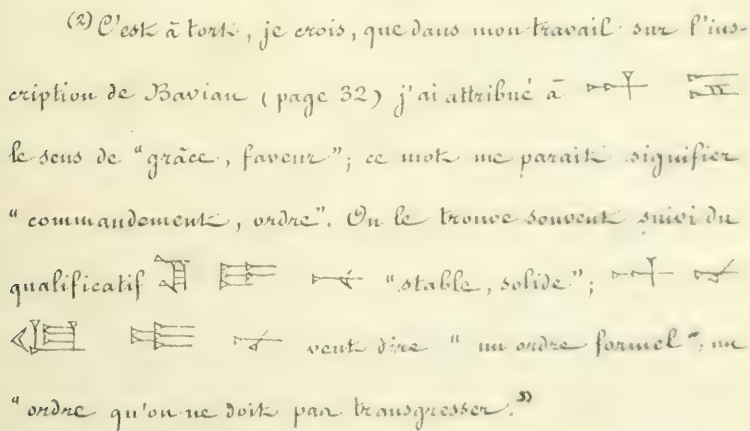 (2) C'est à tort, je crois, que dans mon travail sur l'ins-
cription de Bavian (page 32) j'ai attribué à 𒀭
le sens de "grâce, faveur"; ce mot me parait signifier
"commandement, ordre". On le trouve souvent suivi du
qualificatif 𒂊 𒉡 "stable, solide"; 𒀭 𒉡
𒆠 𒂊 𒉡 veut dire "un ordre formel", un
"ordre qu'on ne doit pas transgresser."